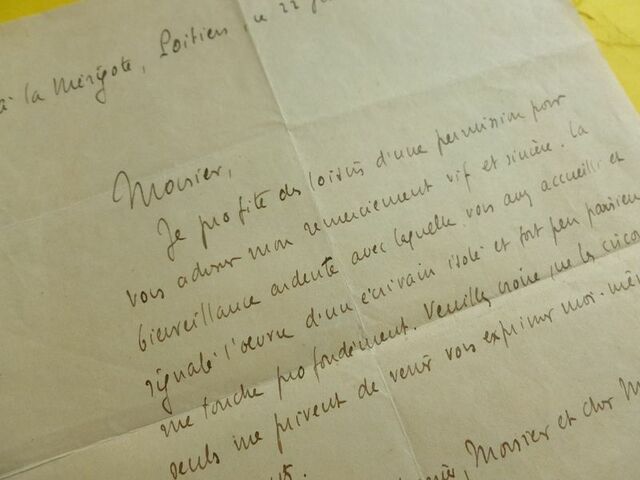 à la Mérigote, Poitiers, ce 22
Monsieur,
Je profite des loisirs d'une permission pour
vous adresser mon remerciement vif et sincère. La
bienveillance ardente avec laquelle vous avez accueilli et
signalé l'oeuvre d'un écrivain isolé et fort peu parisien
me touche profondément. Veuillez croire que les
seuls me privent de venir vous exprimer moi-mê
Monsieur et cher